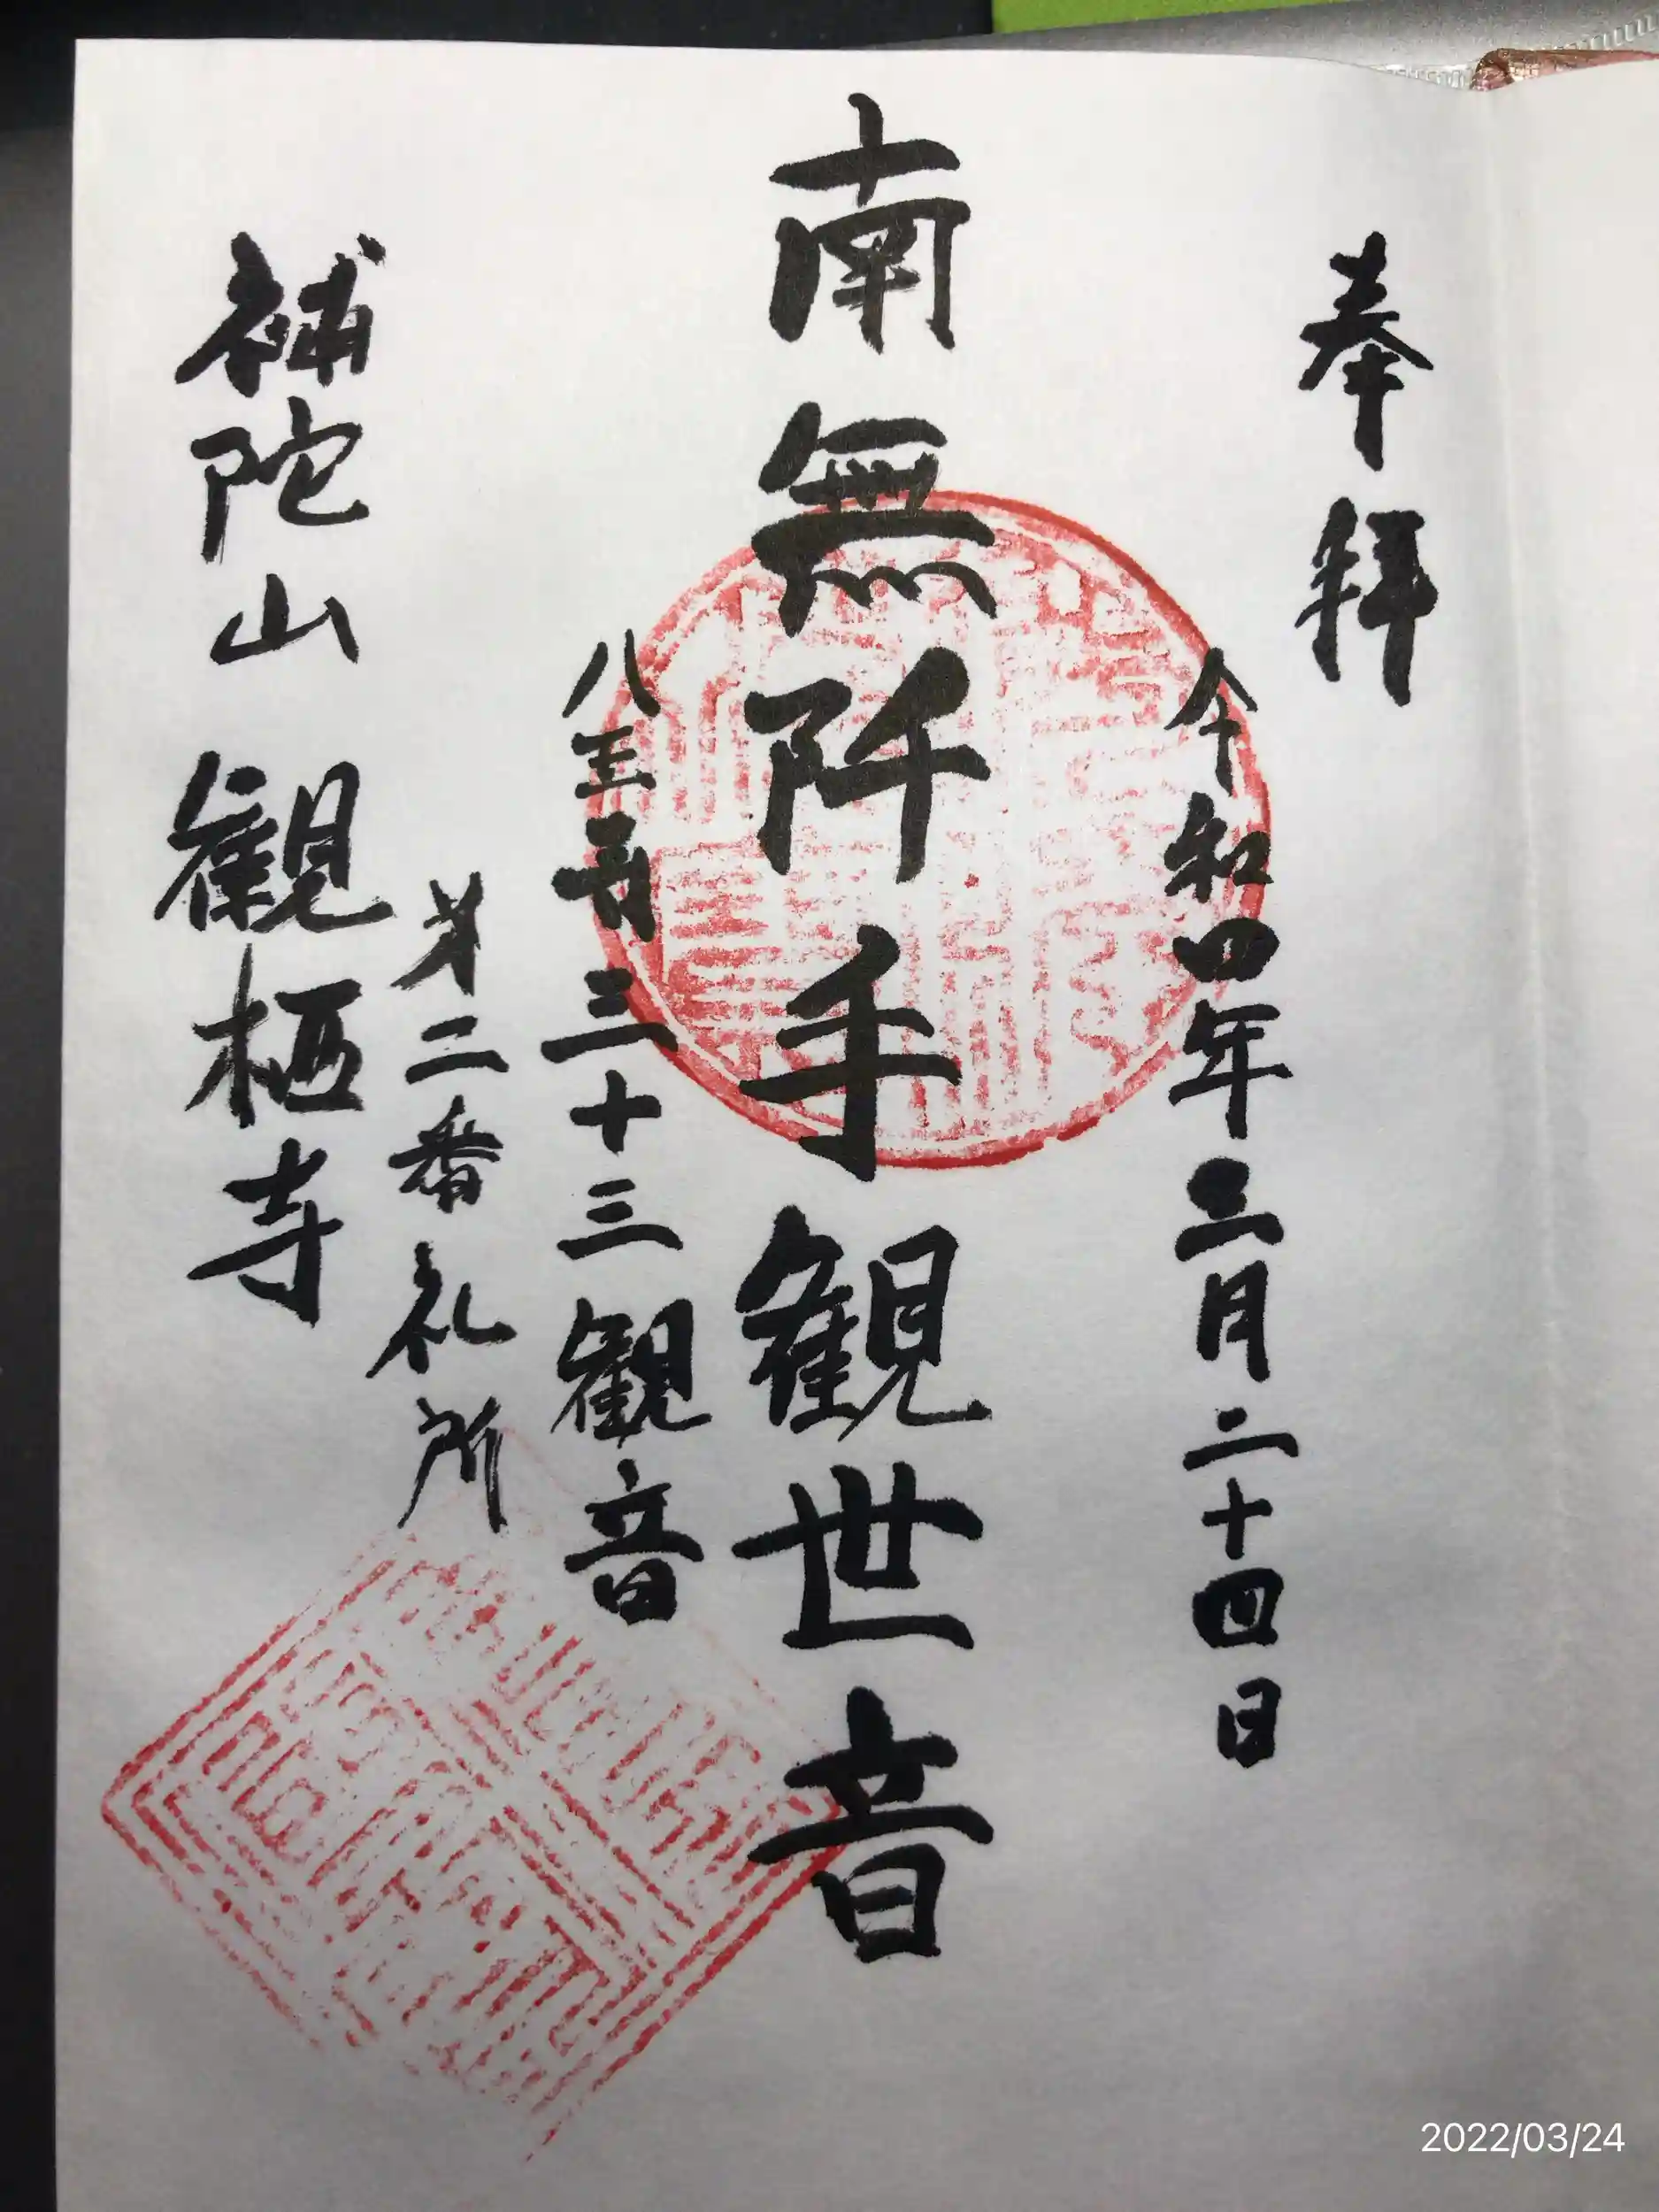 奉拝
令和四年三月二十四日
南無阡手観世音
八王子三十三観音
第二番礼所
補陀山 観栖寺
2022/03/24